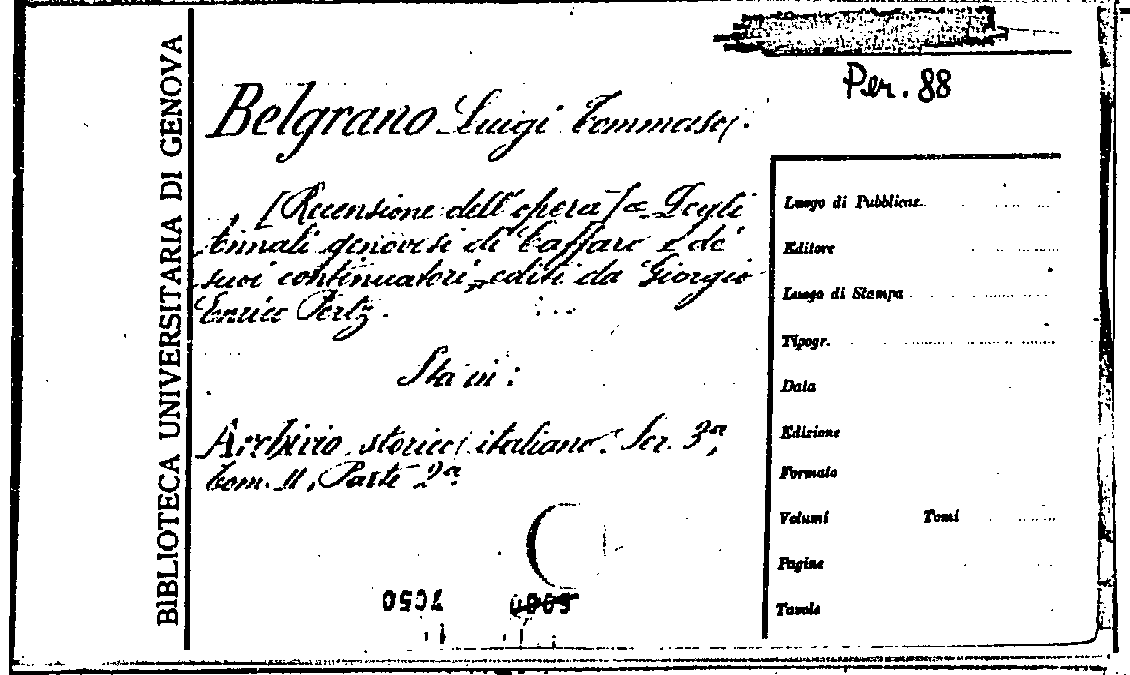 BIBLIOTECA UNIVERSITARIA DI GENOVA
Per. 88
Belgrano Luigi Tommaso.
[Recensione dell'opera] = Degli
Annali genovesi di Caffaro e de'
suoi continuatori, editi da Giorgio
Enrico Pertz.
Sta in:
Archivio storico italiano. Ser. 3ª,
Tom. II, Parte 2ª
Luogo di Pubblicaz.
Editore
Luogo di Stampa
Tipogr.
Data
Edizione
Formato
Volumi Tomi
Pagine
Tavole
7050